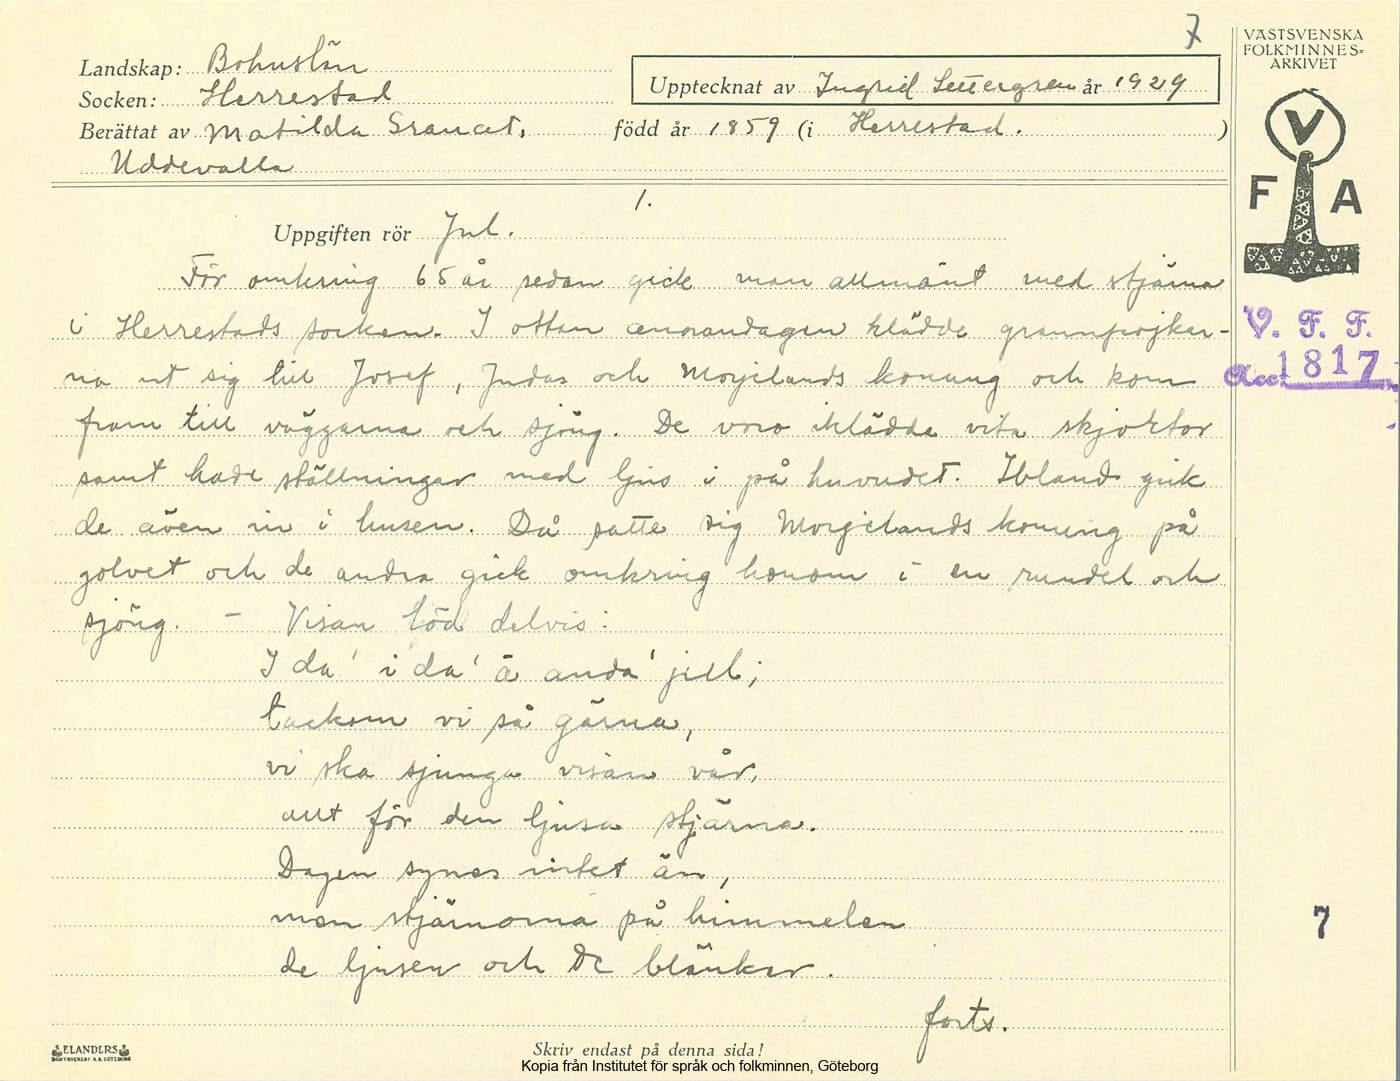 7
VÄSTSVENSKA
FOLKMINNES=
ARKIVET
Landskap: Bohuslän
Upptecknat av Ingrid Settergren år 1929
Socken: Herrestad
Berättat av Matilda född år 1859 (i Herrestad. )
Uddevalla
V
F A
1.
Uppgiften rör Jul.
För omkring 65 år sedan gick man allmänt med stjärna
i Herrestads socken. I ottan annandagen klädde grannpojkar-
na ut sig till Josef, Judas och Morjelands konung och kom
fram till väggarna och sjöng. De voro iklädda vita skjortor
samt hade ställningar med ljus i på huvudet. Ibland gick
de även in i husen. Då satte sig Morjelands konung på
golvet och de andra gick omkring honom i en rundel och
sjöng. - Visan löd delvis:
I da' i da' å anda' jill;
tackom vi så gärna,
vi ska sjunga visan vår,
allt för den ljusa stjärna.
Dagen synes intet än,
men stjärnorna på himmelen
de ljusen och De blänker.
forts.
V. F. F.
Acc. 1817
7
ELANDERS
BOKTRYCKERI A.B. GÖTEBORG
Skriv endast på denna sida!
Kopia från Institutet för språk och folkminnen, Göteborg